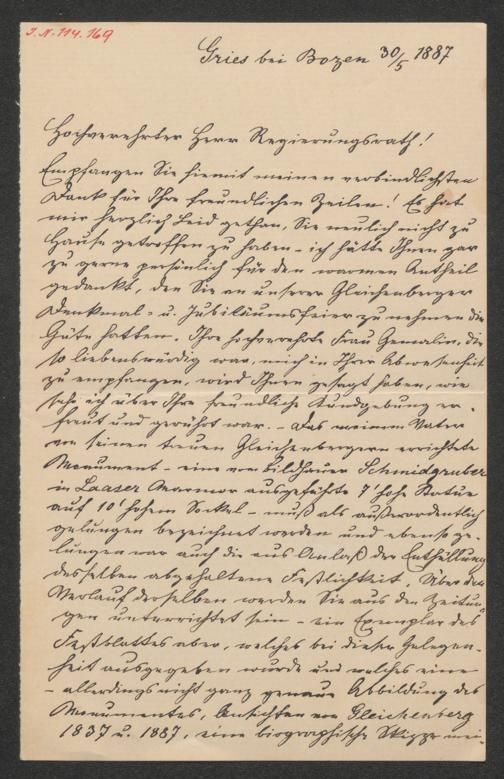 J.N. 114.169
Gries bei Bozen 30/5 1887
Hochverehrter Herr Regierungsrath!
Empfangen Sie hiemit meinen verbindlichsten
Dank für Ihre freundlichen Zeilen! Es hat
mir herzlich leid gethan, Sie neulich nicht zu
Hause getroffen zu haben – ich hätte Ihnen gar
zu gerne persönlich für den warmen Antheil
gedankt, den Sie an unserer Gleichenberger
Denkmal- u. Jubiläumsfeier zu nehmen die
Güte hatten. Ihre hochverehrte Frau Gemalin, die
so liebenswürdig war, mich in Ihrer Abwesenheit
zu empfangen, wird Ihnen gesagt haben, wie
sehr ich über Ihre freundliche Kundgebung er-
freut und gerührt war. – Das meinem Vater
von seinen treuen Gleichenbergern errichtete
Monument – eine vom Bildhauer Schmidgruber
in Laaser Marmor ausgeführte 7' hohe Statue
auf 10' hohem Sockel – muß als außerordentlich
gelungen bezeichnet werden und ebenso ge-
lungen war auch die aus Anlaß der Enthüllung
desselben abgehaltene Festlichkeit. Über den
Verlauf derselben werden Sie aus den Zeitun-
gen unterrichtet sein – ein Exemplar des
Festblattes aber, welches bei dieser Gelegen-
heit ausgegeben wurde und welches eine
– allerdings nicht ganz genaue Abbildung des
Monumentes, Ansichten von Gleichenberg
1837 u. 1887, eine biographische Skizze mei-